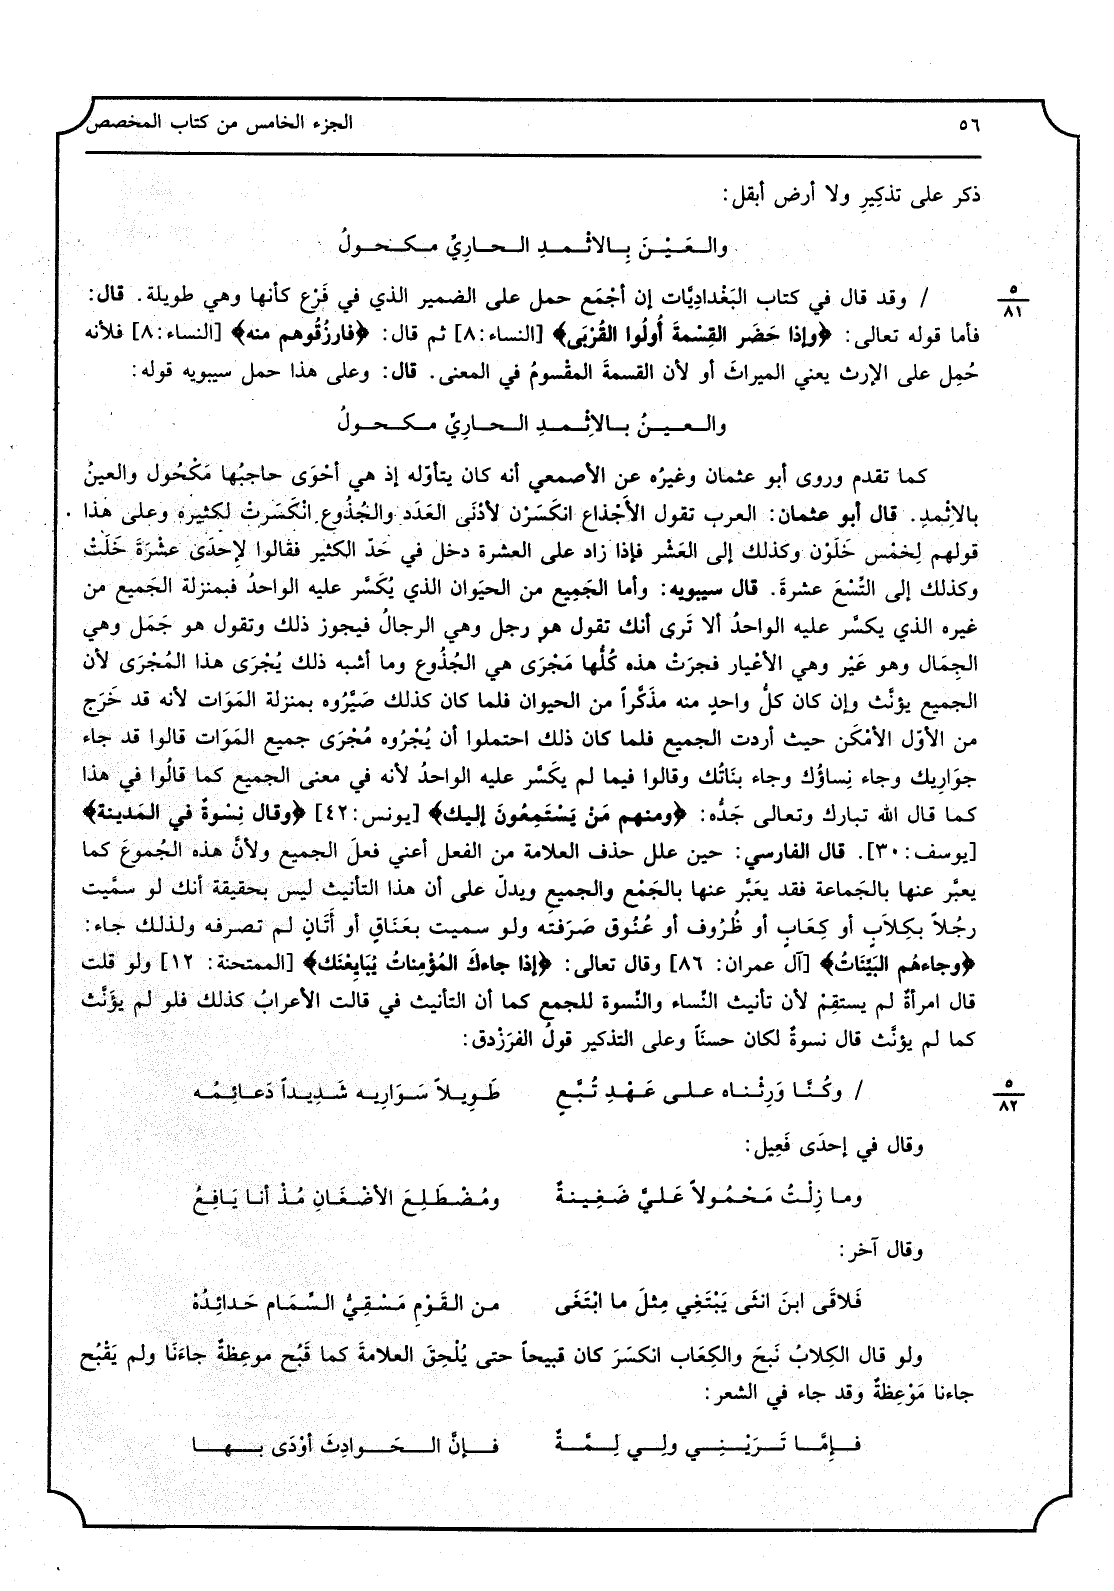 ٥٦
الجزء الخامس من كتاب المخصص
ذكر على تذكيرِ ولا أرض أبقل:
والـعَـيْـنَ بِـالاثْـمـدِ الـحـاريِّ مـكـحـولُ
٥
٨١
/ وقد قال في كتاب البَغْدادِيَّات إن أجْمَع حمل على الضمير الذي في فَرْع كأنها وهي طويلة. قال:
فأما قوله تعالى: ﴿وإذا حَضَر القِسْمةَ أُولُوا القُرْبَى﴾ [النساء:٨] ثم قال: ﴿فارزُقُوهم منه﴾ [النساء:٨] فلأنه
حُمِل على الإرث يعني الميراثَ أو لأن القسمةَ المقْسومُ في المعنى. قال: وعلى هذا حمل سيبويه قوله:
والـعـيـنُ بـالاِثْـمـدِ الـحـاريِّ مـكـحـولُ
كما تقدم وروى أبو عثمان وغيرُه عن الأصمعي أنه كان يتأوّله إذ هي أحْوَى حاجبُها مَكْحُول والعينُ
بالاثْمدِ. قال أبو عثمان: العرب تقول الأَجْذاع انكَسَرْن لأدْنَى العَدَد والجُذُوع انْكَسَرتْ لكثيره وعلى هذا
قولهم لِخمْس خَلَوْن وكذلك إلى العَشْر فإذا زاد على العشرة دخل في حَدّ الكثير فقالوا لإحْدَى عشْرَةَ خَلَتْ
وكذلك إلى التِّسْعَ عشرةَ. قال سيبويه: وأما الجَمِيع من الحيَوان الذي يُكَسَّر عليه الواحدُ فبمنزلة الجَميع من
غيره الذي يكسَّر عليه الواحدُ ألا تَرى أنك تقول هو رجل وهي الرجالُ فيجوز ذلك وتقول هو جَمَل وهي
الجِمَال وهو عَيْر وهي الأعْيار فجرَتْ هذه كُلُّها مَجْرَى هي الجُذُوع وما أشبه ذلك يُجْرَى هذا المُجْرَى لأن
الجميع يؤنَّث وإن كان كلُّ واحدٍ منه مذَكَّراً من الحيوان فلما كان كذلك صَيَّرُوه بمنزلة المَوَات لأنه قد خَرَج
من الأوّل الأمْكَن حيث أردت الجميع فلما كان ذلك احتملوا أن يُجْرُوه مُجْرَى جميع المَوَات قالوا قد جاء
جوَارِيك وجاء نِساؤُك وجاء بنَاتُك وقالوا فيما لم يكَسَّر عليه الواحدُ لأنه في معنى الجميع كما قالُوا في هذا
كما قال الله تبارك وتعالى جَدُّه: ﴿ومنهم مَنْ يَسْتَمِعُونَ إليك﴾ [يونس:٤٢] ﴿وقال نِسْوةٌ في المَدينة﴾
[يوسف:٣٠]. قال الفارسي: حين علل حذف العلامة من الفعل أعني فعلَ الجميع ولأنَّ هذه الجُموعَ كما
يعبَّر عنها بالجَماعة فقد يعَبَّر عنها بالجَمْع والجميع ويدلّ على أن هذا التأنيث ليس بحقيقة أنك لو سمَّيت
رجُلاً بكِلابٍ أو كِعَابٍ أو ظُرُوف أو عُنُوق صَرَفته ولو سميت بعَنَاقٍ أو أَتَانٍ لم تصرفه ولذلك جاء:
﴿وجاءهُم البَيِّنَاتُ﴾ [آل عمران: ٨٦] وقال تعالى: ﴿إذا جاءكَ المُؤْمِناتُ يُبَايِعْنَك﴾ [الممتحنة: ١٢] ولو قلت
قال امرأةٌ لم يستقِمْ لأن تأنيث النِّساء والنِّسوة للجمع كما أن التأنيث في قالت الأعرابُ كذلك فلو لم يؤَنَّث
كما لم يؤنَّث قال نسوةٌ لكان حسنَاً وعلى التذكير قولُ الفرَزْدق:
٥
٨٢
/ وكُـنَّـا وَرِثْـنـاه عـلـى عَـهْـدِ تُـبَّـعٍ    طَـوِيـلاً سَـوَارِيـه شَـدِيـداً دَعـائِـمُـه
وقال في إحدَى فَعِيل:
ومـا زِلْـتُ مَـحْـمُـولاً عَـلـيَّ ضَـغِـيـنـةٌ    ومُـضْـطَـلِـعَ الأضْـغَـانِ مُـذْ أنـا يَـافِـعُ
وقال آخر:
فَلاقَى ابنَ انثَى يَبْتَغِي مِثلَ ما ابْتَغَى    مـن القَـوْمِ مَـسْـقِـيُّ السِّـمَـام حَـدائِـدُهْ
ولو قال الكِلابُ نَبحَ والكِعَاب انكسَرَ كان قبيحاً حتى يُلْحِقَ العلامةَ كما قَبُح موعِظةٌ جاءَنَا ولم يَقْبُح
جاءنا مَوْعِظةٌ وقد جاء في الشعر:
فـإمَّـا تَـرَيْـنِـي ولِـي لِـمَّـةٌ    فـإنَّ الـحَـوادِثَ أوْدَى بـهـا